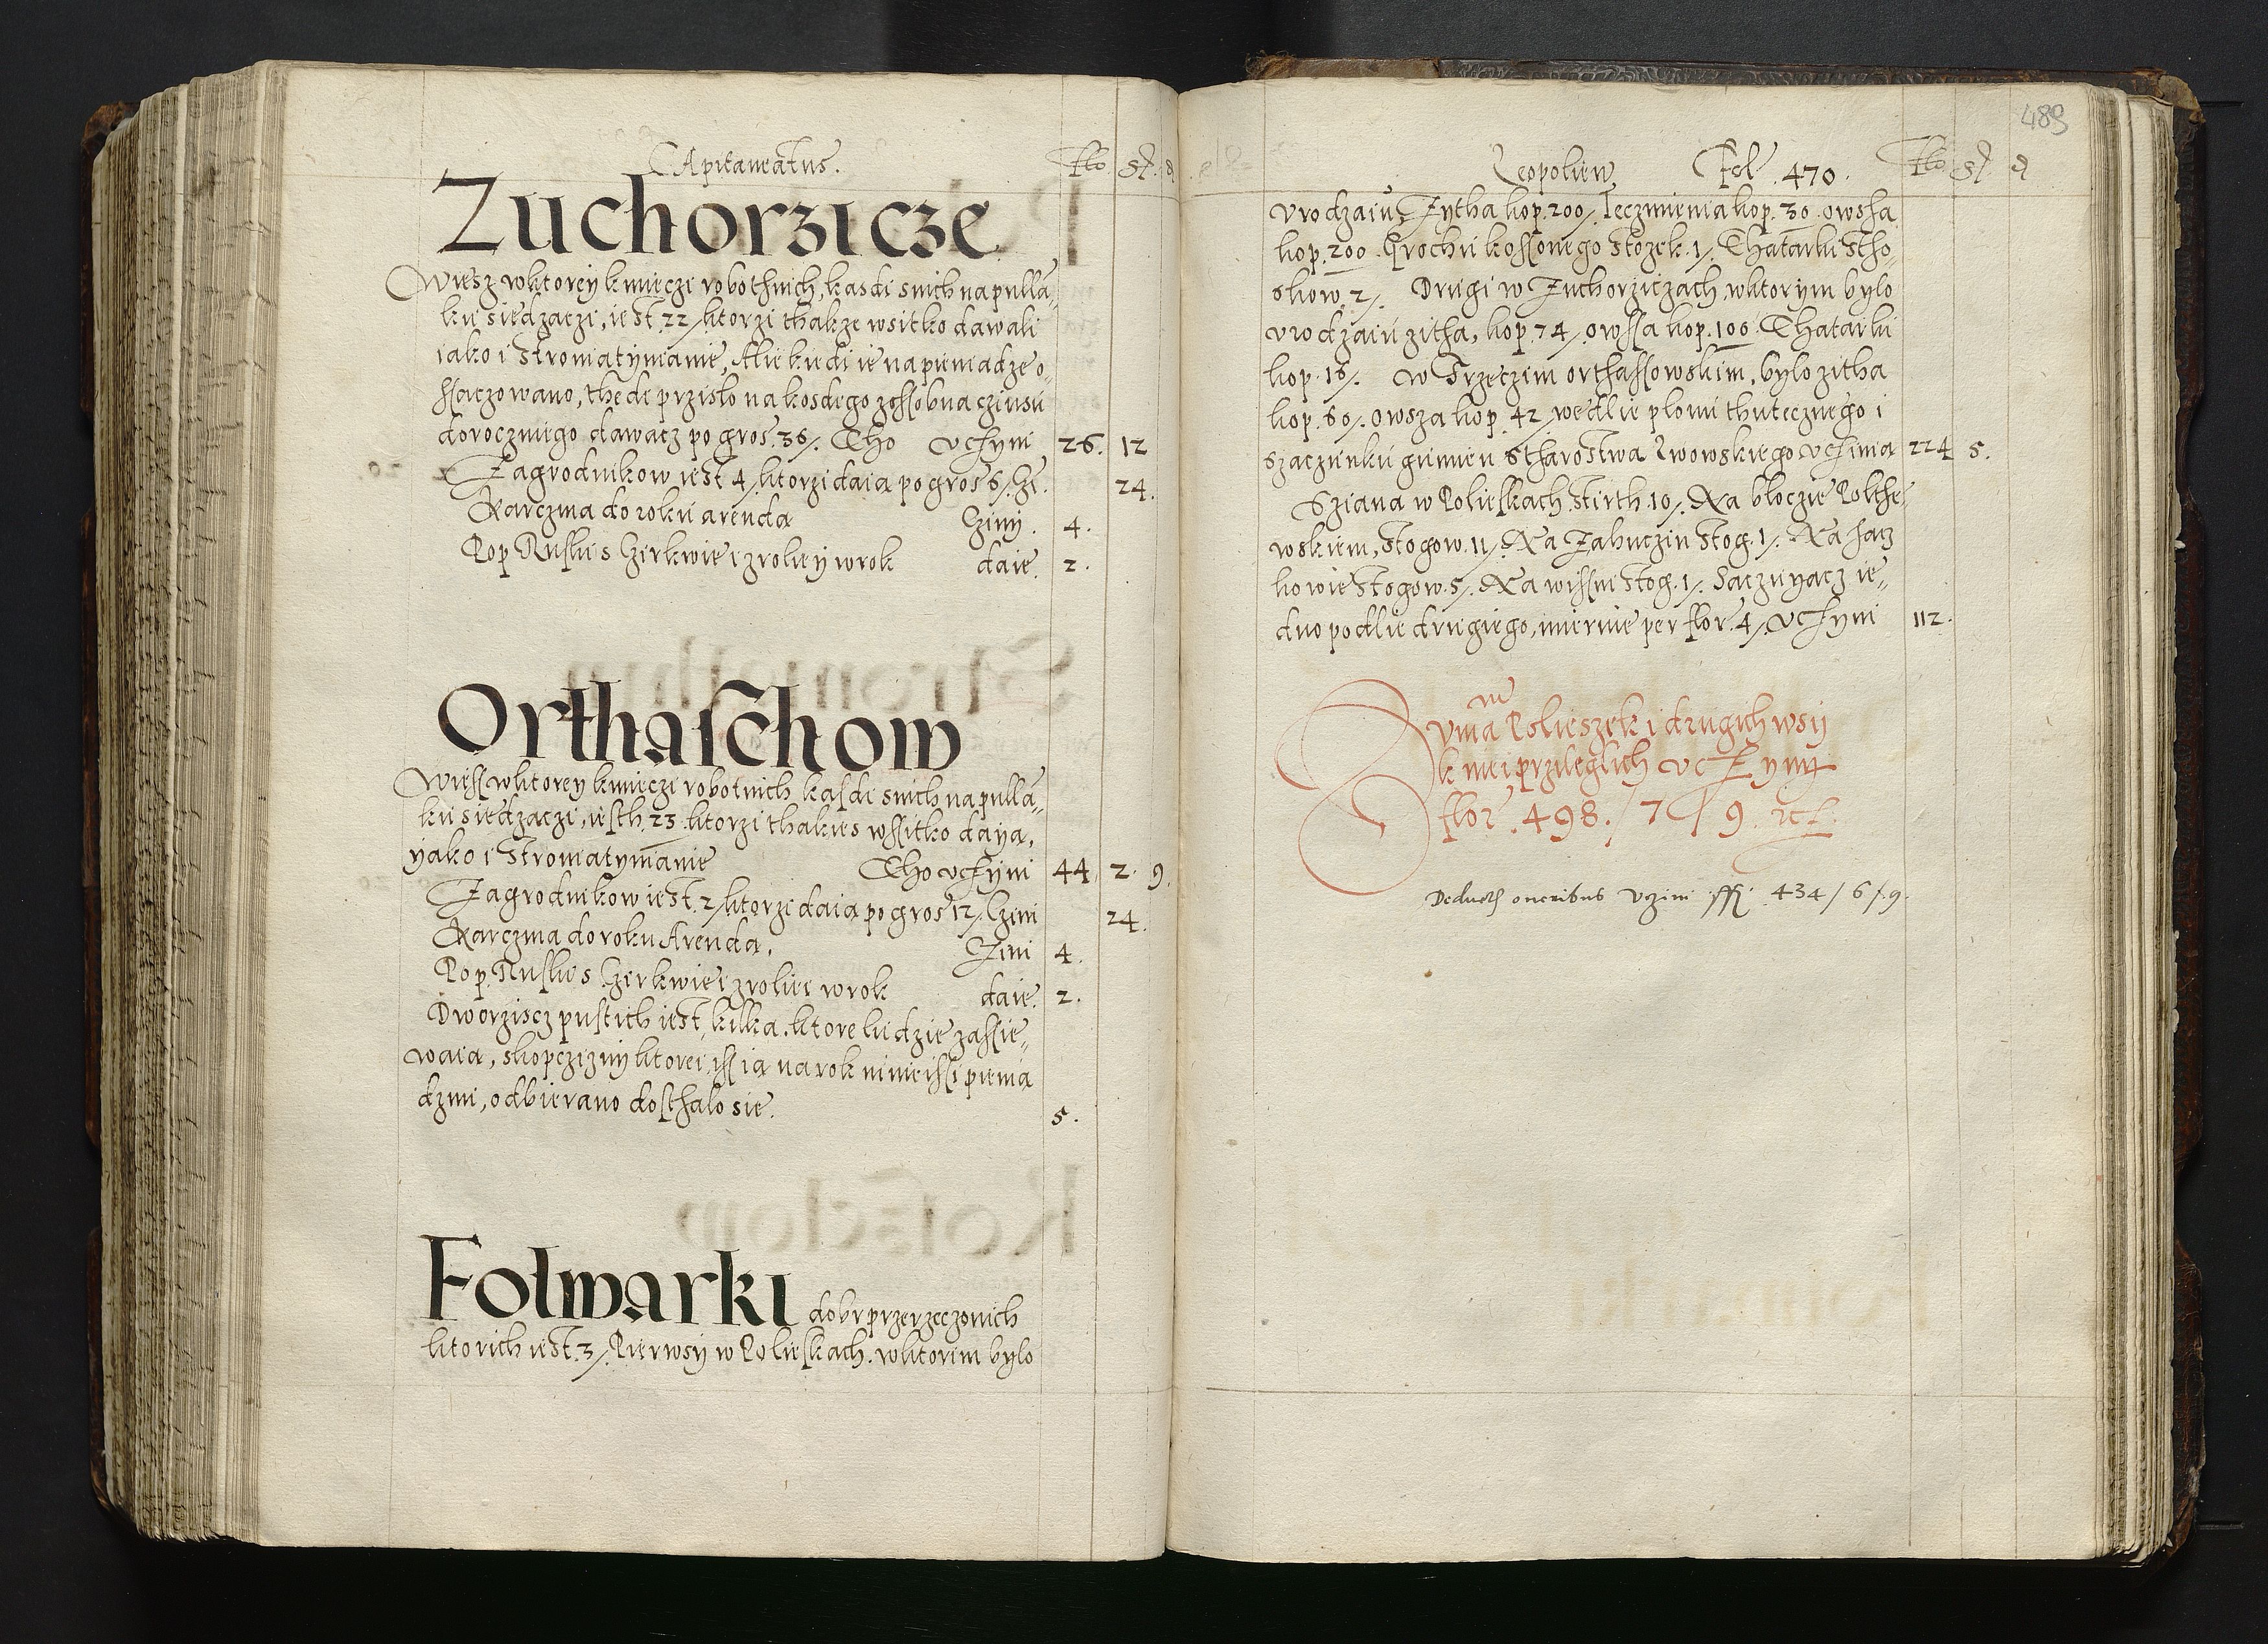 Capitaneatus. flo. gr. d
Zuchorzicze
Wiesz wktorey kmieczi robothnich, kasdi snich na pulla„
ku siedzaczi, iest 22/ ktorzi thakze wsitko dawali
iako i Stroniatynianie, Alie kiedi ie na pieniadze o„
ssaczowano, thedi przislo na kosdego zossobna czinsu
doroczniego dawacz po gros. 36/. Tho vchyni 26. 12
Zagrodnikow iest 4/ ktorzi daia po gros 6/ Czi. 24.
Karczma do roku arenda Cziny. 4.
Pop Ruski s Czerkwie i zroliey w rok daie. 2.
Orthaschow
Wiess wktorey kmieczi robotnich kasdi snich na pulla„
ku siedzaczi, iesth 23. ktorzi thakies wssitko daya,
yako i Stroniatynianie Tho vchyni 44. 2. 9.
Zagrodnikow iest 2/ ktorzi daia po gros 12/. Czini 24.
Karczma do roku Arenda. Zini 4.
Pop. Ruski s Czerkwie i zroliei w rok daie. 2.
Dworziscz pustich iest kilka. ktore ludzie zassie„
waia, skopczizny ktorei, iss ia na rok ninieissi pienia
dzmi, odbierano dosthalo sie. 5.
Folwarki dobr przerzeczonich
ktorich iest. 3/. Pierwsy w Polieskach. wktorim bylo
489
Leopolien Fol. 470. flo. gr. d
vrodzaiu, Zytha kop. 200/. Ieczmienia kop. 30. owsha
kop. 200. Grochu kossonego Stozek. 1/. Thatarki Stho„
skow. 2/. Drugi w Zuchorziczach, wktorym bylo
vrodzaiu zitha, kop. 74/. owssa kop. 100 Thatarki
kop. 16/. w Trzeczim orthassowskim, bylo zitha
kop. 60/. owsza kop. 42/ wedlie plonu thutecznego i
szaczunku gumien Stharostwa Lwowskiego vchinia 224 5.
Sziana w Polieskach Stirth. 10/. Na bloczie Polthe„
wskiem, Stogow. 11/. Na Zabuczin Stog. 1/. Na
kowie Stogow. 5/. Na wissni Stog. 1/. Saczuyacz ie„
dno podlie drugiego, miernie per flor. 4/. vchyni 112.
Suma Polieszek i drugich wsy
k niei przileglich vchyny
flor. 498./ 7/ 9.
oneribus vczini 434/ 6/. 9.